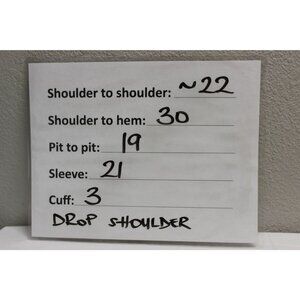 Shoulder to shoulder: ~22
Shoulder to hem: 30
Pit to pit: 19
Sleeve: 21
Cuff: 3
DROP SHOULDER